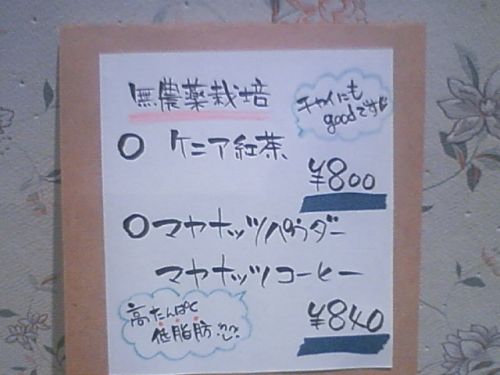 無農薬栽培
チャイにも
goodです
○ ケニア紅茶
¥800
○マヤナッツパウダー
マヤナッツコーヒー
高たんぱく
低脂肪
¥840